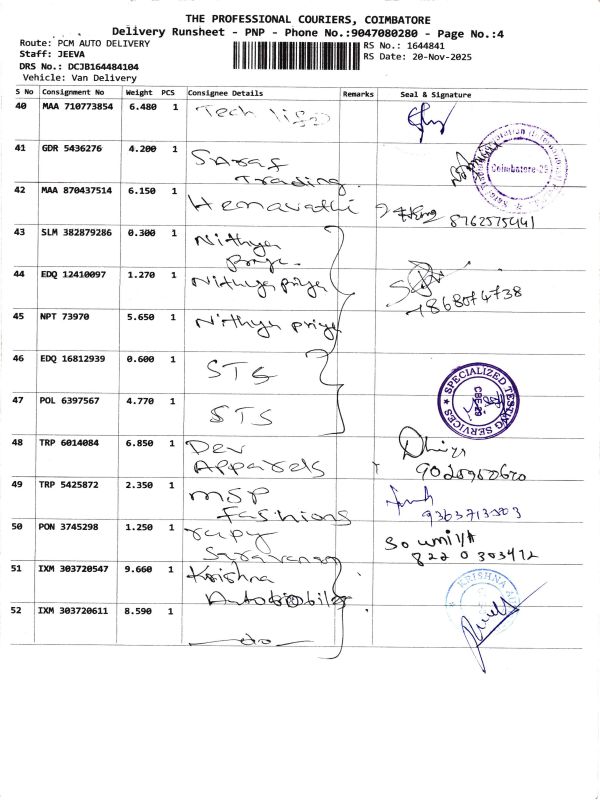 THE PROFESSIONAL COURIERS, COIMBATORE
Delivery Runsheet - PNP - Phone No.:9047080280 - Page No.:4
Route: PCM AUTO DELIVERY
Staff: JEEVA
DRS No.: DCJB164484104
Vehicle: Van Delivery
RS No.: 1644841
RS Date: 20-Nov-2025
S No Consignment No Weight PCS Consignee Details Remarks Seal & Signature
40 MAA 710773854 6.480 1 Tech
41 GDR 5436276 4.200 1 Saraf
Trading
Coimbatore-29
42 MAA 870437514 6.150 1 Hemavathi
8762575441
43 SLM 382879286 0.300 1 Nithya
priya
44 EDQ 12410097 1.270 1 Nithya priya
7868074738
45 NPT 73970 5.650 1 Nithya priya
46 EDQ 16812939 0.600 1 STS
47 POL 6397567 4.770 1 STS
SPECIALIZED TESTING SERVICES
48 TRP 6014084 6.850 1 Dev
Apparels
49 TRP 5425872 2.350 1 MSP
Fashions
50 PON 3745298 1.250 1 rupy
Saravanan
8220303412
51 IXM 303720547 9.660 1 Krishna
Automobiles
KRISHNA
52 IXM 303720611 8.590 1
do